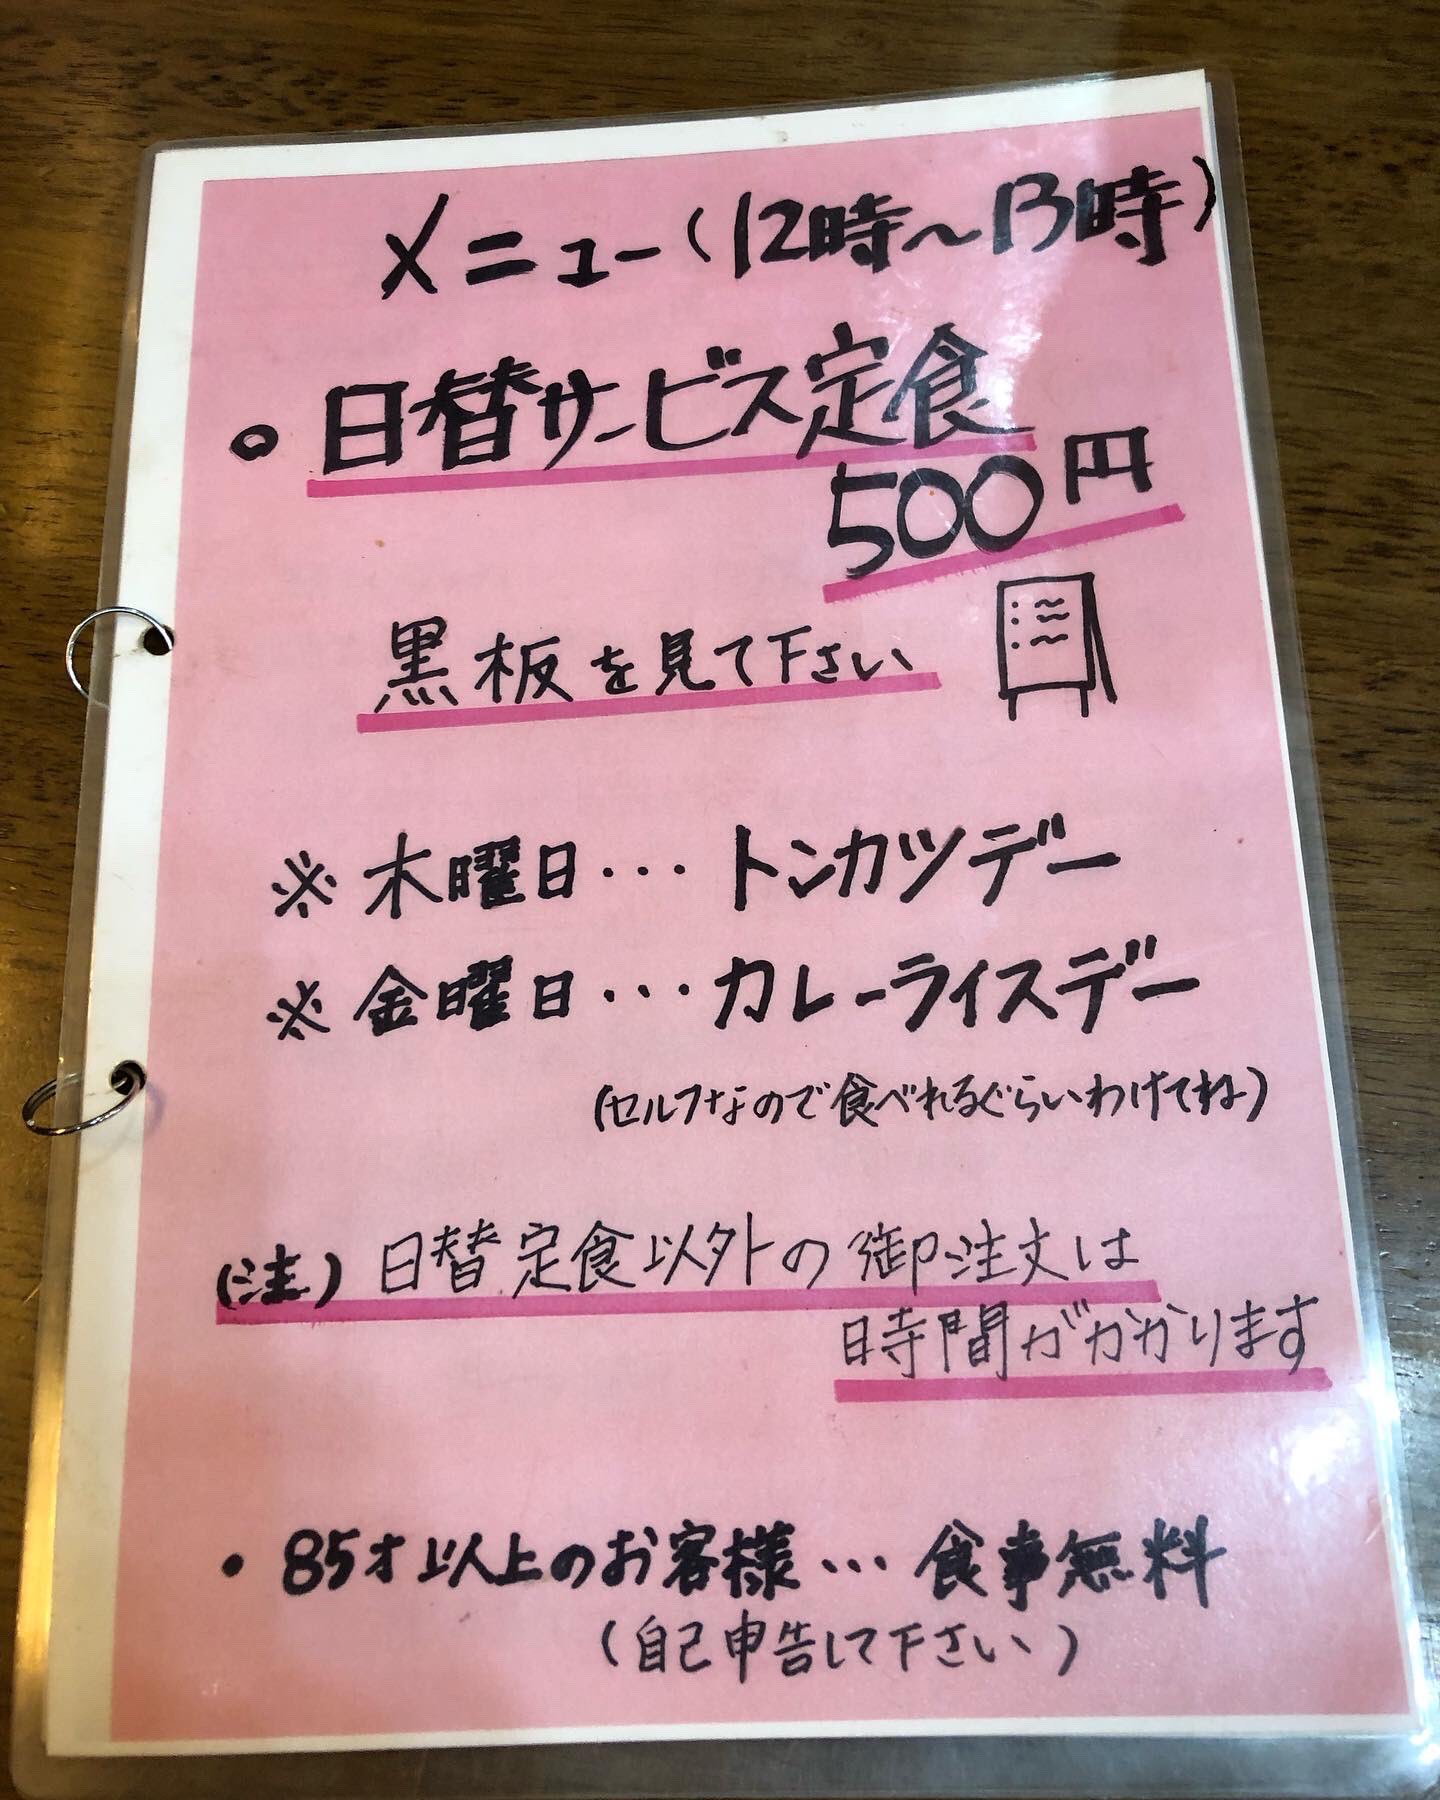 メニュー(12時～13時)
○日替サービス定食
500円
黒板を見て下さい
※木曜日・・・トンカツデー
※金曜日・・・カレーライスデー
(セルフなので食べれるぐらいわけてね)
(注)日替定食以外の御注文は
時間がかかります
・85才以上のお客様・・・食事無料
(自己申告して下さい)